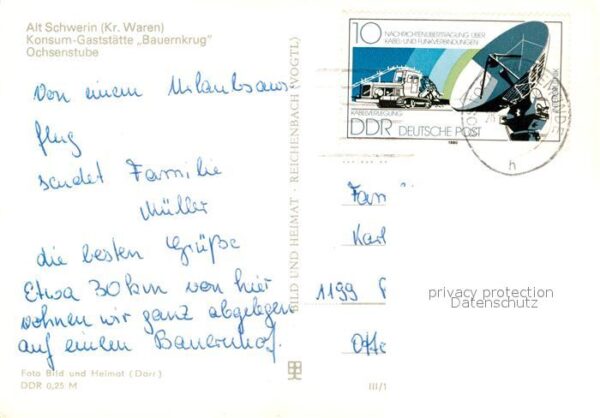 Alt Schwerin (Kr. Waren)
Konsum-Gaststätte „Bauernkrug"
Ochsenstube
Von einem Urlaubsaus
flug
sendet Familie
Müller
die besten Grüße
Etwa 30 km von hier
wohnen wir ganz abgelegen
auf einem Bauernhof.
Foto Bild und Heimat (Darr)
DDR 0,25 M
BILD UND HEIMAT · REICHENBACH (VOGTL)
10 NACHRICHTENÜBERTRAGUNG ÜBER
KABEL- UND FUNKVERBINDUNGEN
KABELVERLEGUNG
DDR DEUTSCHE POST
1980
h
Fam
Karl
1199
privacy protection
Datenschutz
III/1